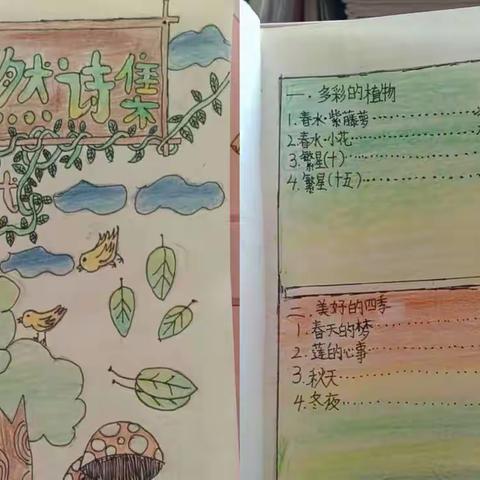 然诗集
一. 多彩的植物
1. 春水·紫藤萝……………
2. 春水·小花……………
3. 繁星(十)……………
4. 繁星(十五)……………
二. 美好的四季
1. 春天的梦……………
2. 莲的心事……………
3. 秋天……………
4. 冬夜……………